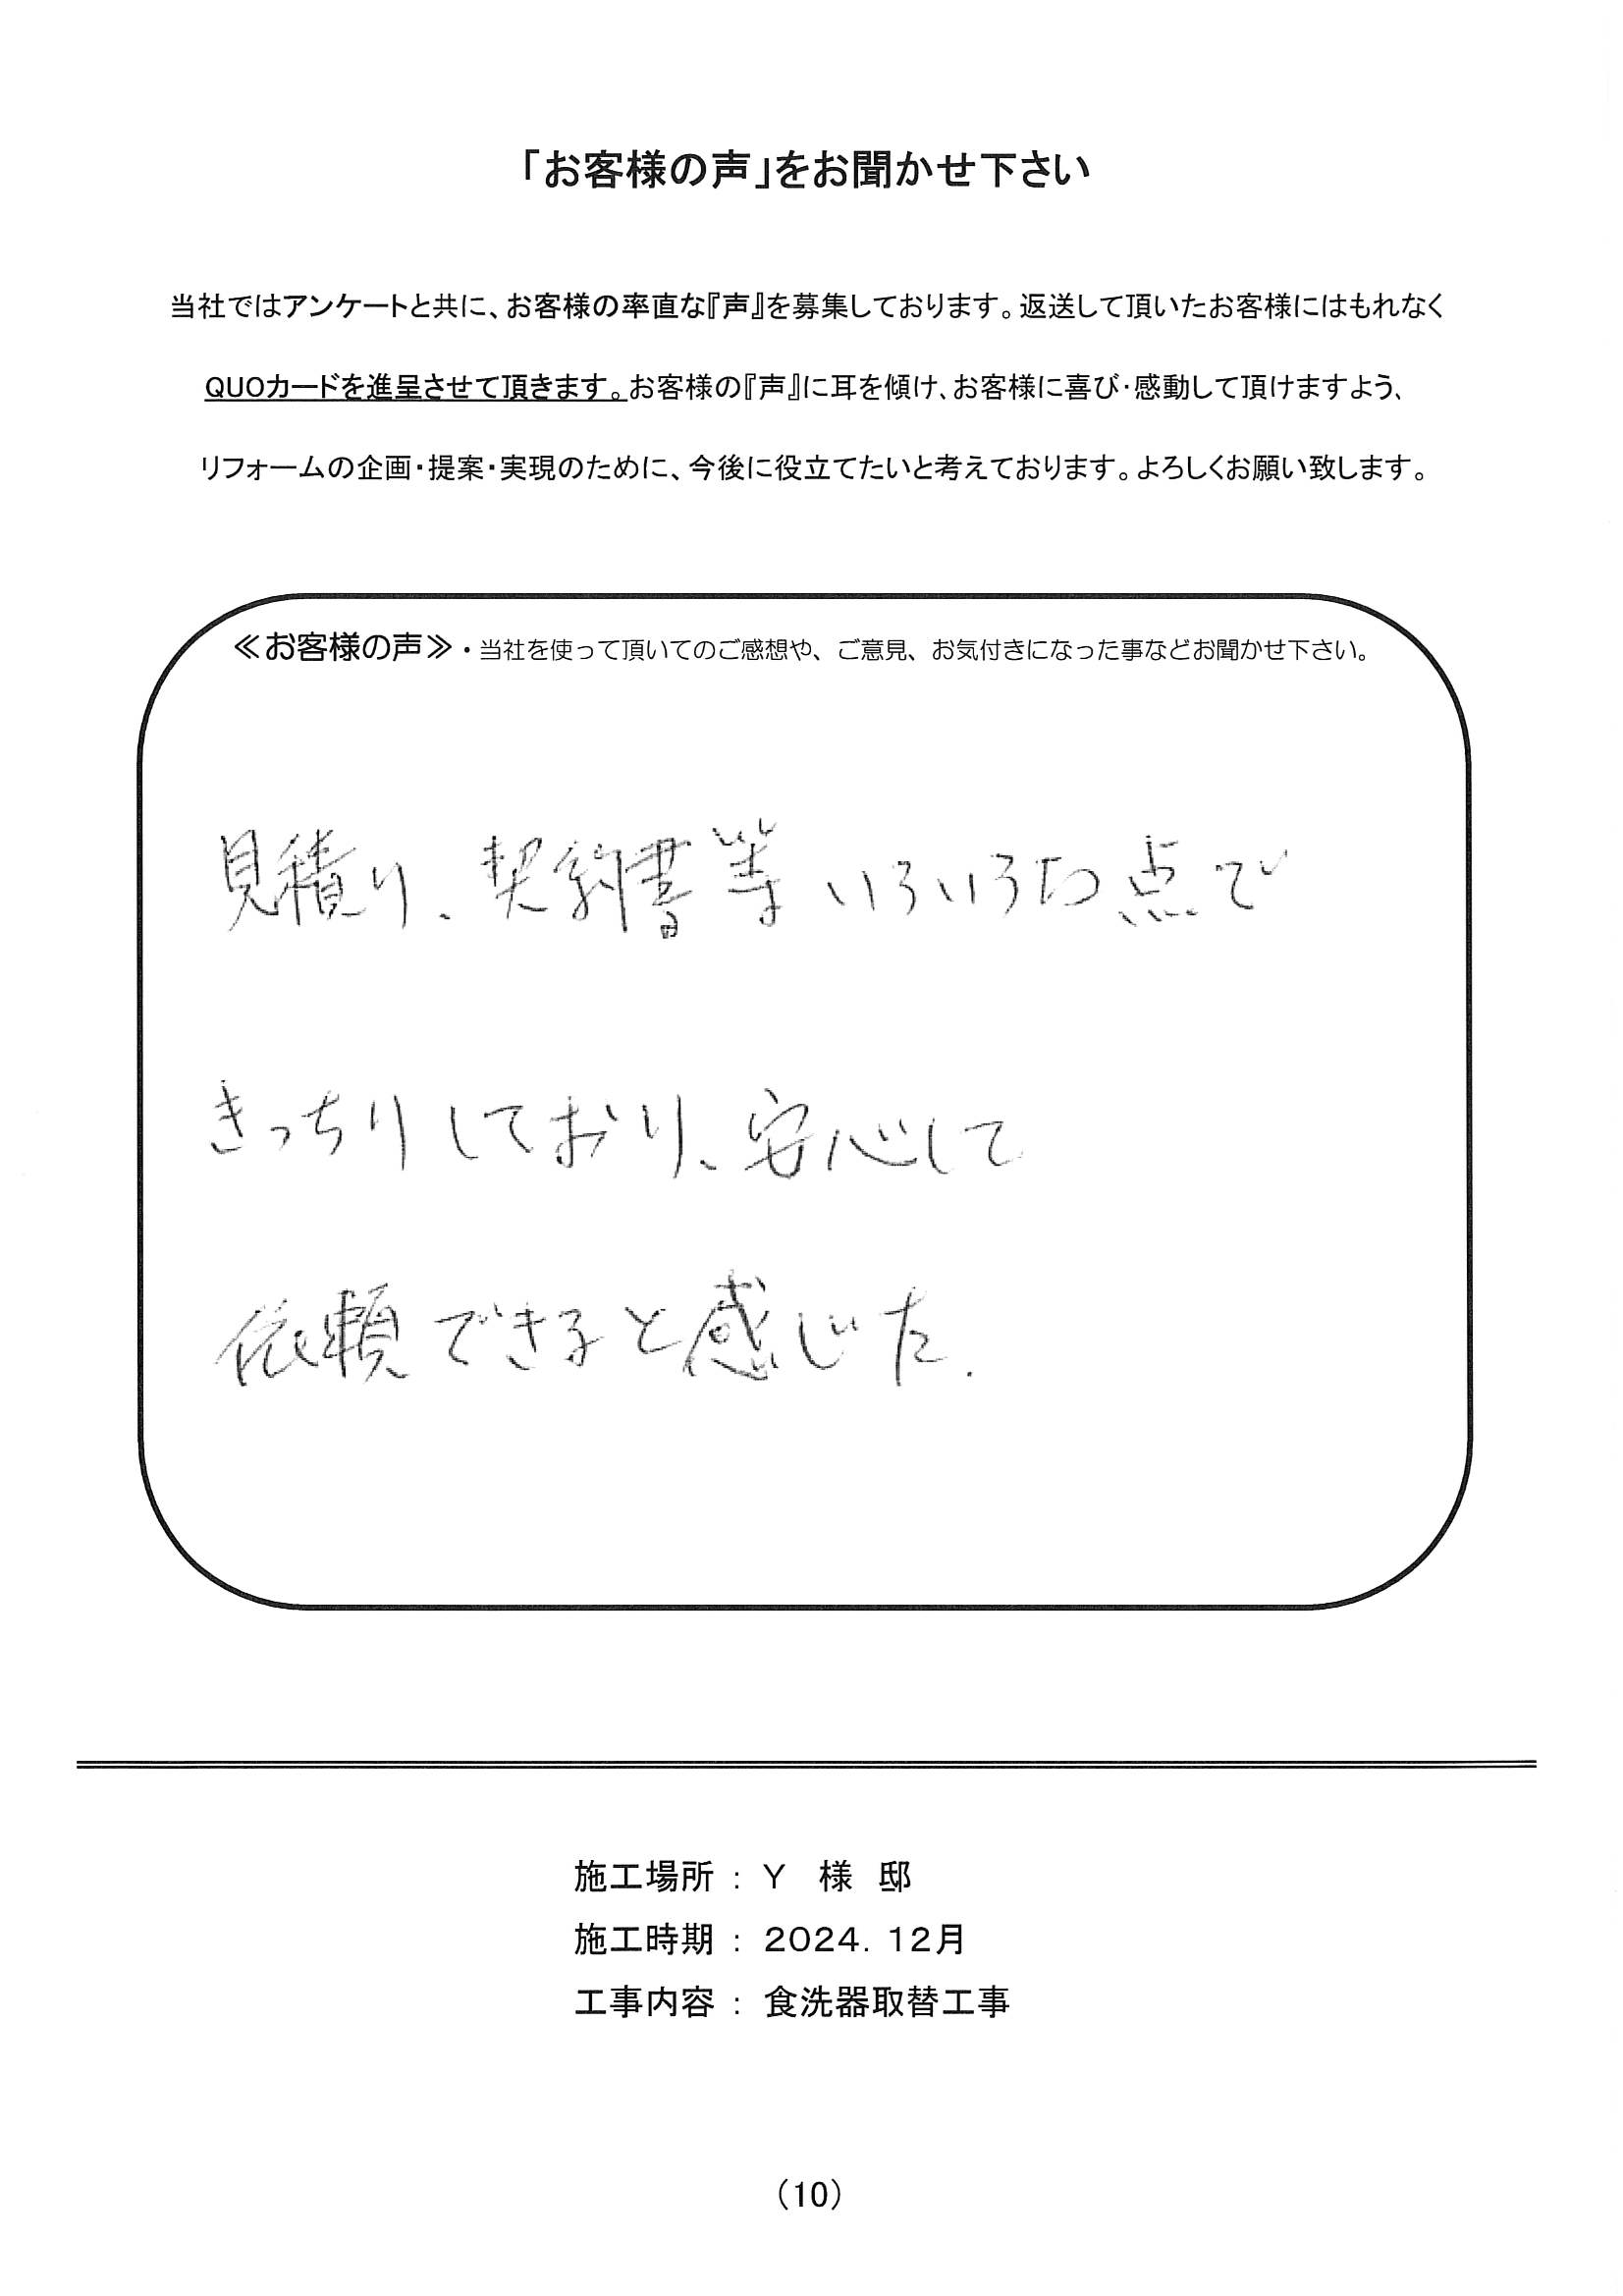 「お客様の声」をお聞かせ下さい
当社ではアンケートと共に、お客様の率直な『声』を募集しております。返送して頂いたお客様にはもれなく
QUOカードを進呈させて頂きます。お客様の『声』に耳を傾け、お客様に喜び・感動して頂けますよう、
リフォームの企画・提案・実現のために、今後に役立てたいと考えております。よろしくお願い致します。
≪お客様の声≫・当社を使って頂いてのご感想や、ご意見、お気付きになった事などお聞かせ下さい。
見積り、契約書等いろいろな点で
きっちりしており、安心して
依頼できると感じた.
施工場所 : Y 様 邸
施工時期 : 2024. 12月
工事内容 : 食洗器取替工事
(10)